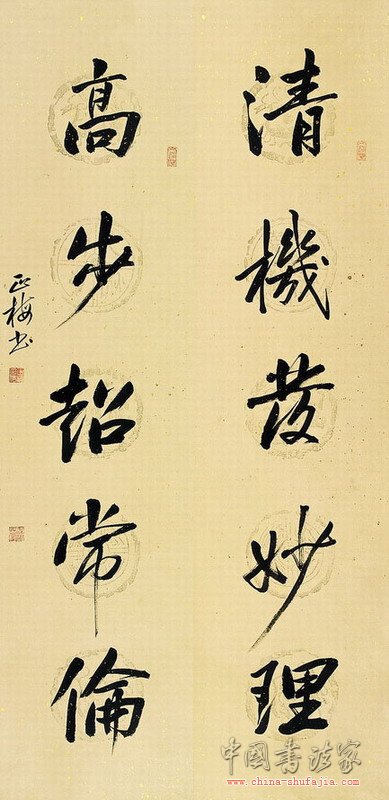 清機發妙理
高步超常倫
正梅书
中國書法家
www.china-shufajia.com